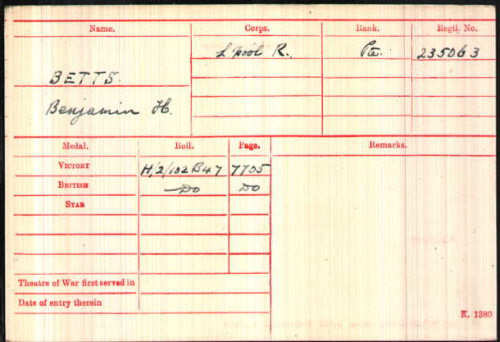 Name. Corps. Rank. Regtl. No.
L'pool R. Pte. 235063
BETTS.
Benjamin H.
Medal. Roll. Page. Remarks.
VICTORY H/2/102B47 7705
BRITISH Do Do
STAR
Theatre of War first served in
Date of entry therein
K. 1380